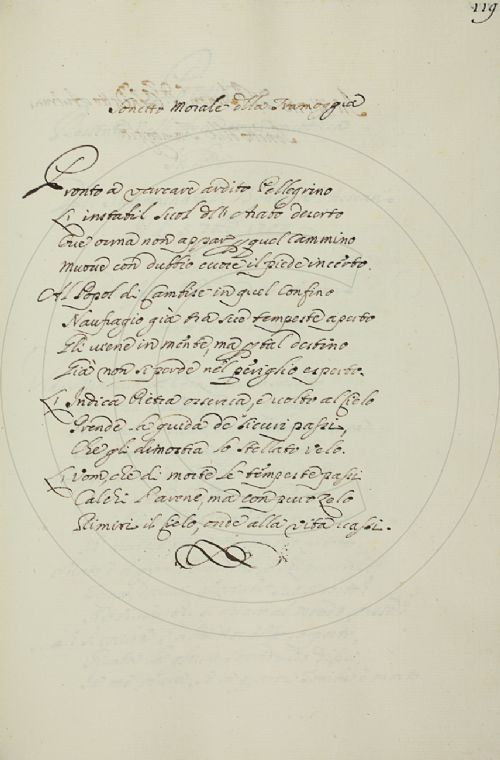 119
Sonetto Morale della Tramoggia
Pronto à varcare ardito Pellegrino
L'instabil suol dell'Arabo deserto
Oue orma non appar p quel Cammino
Muoue con dubbio cuore il piede incerto.
Al Popol di Cambise in quel Confino
Naufragio già trà secche tempeste aperto
Gli uiene in mente, mà p tal destino
Già non si perde nel periglio esperto.
L'Indica Pietra osserua, e uolto al Cielo
Prende la guida de sicuri passi,
Che gli dimostra lo stellato uelo.
L'uom, che di morte le tempeste passi
Calchi l'arene, mà con puro zelo
Rimiri il Cielo, onde alla uita i passi.